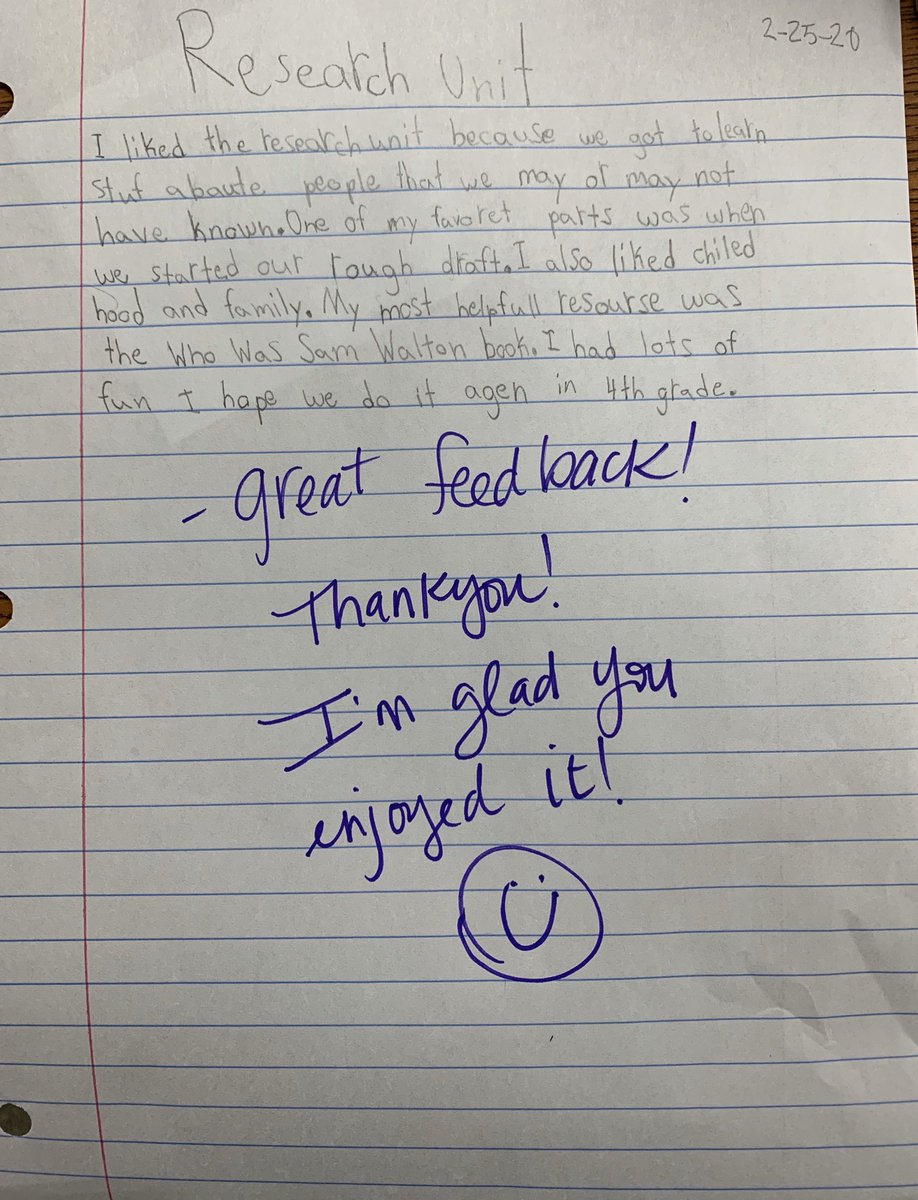 2-25-20
Research Unit
I liked the research unit because we got to learn
stuf aboute people that we may or may not
have known. One of my favoret parts was when
we started our rough draft. I also liked chiled
hood and family. My most helpfull resourse was
the Who Was Sam Walton book. I had lots of
fun I hope we do it agen in 4th grade.
- great feedback!
Thankyou!
I'm glad you
enjoyed it!